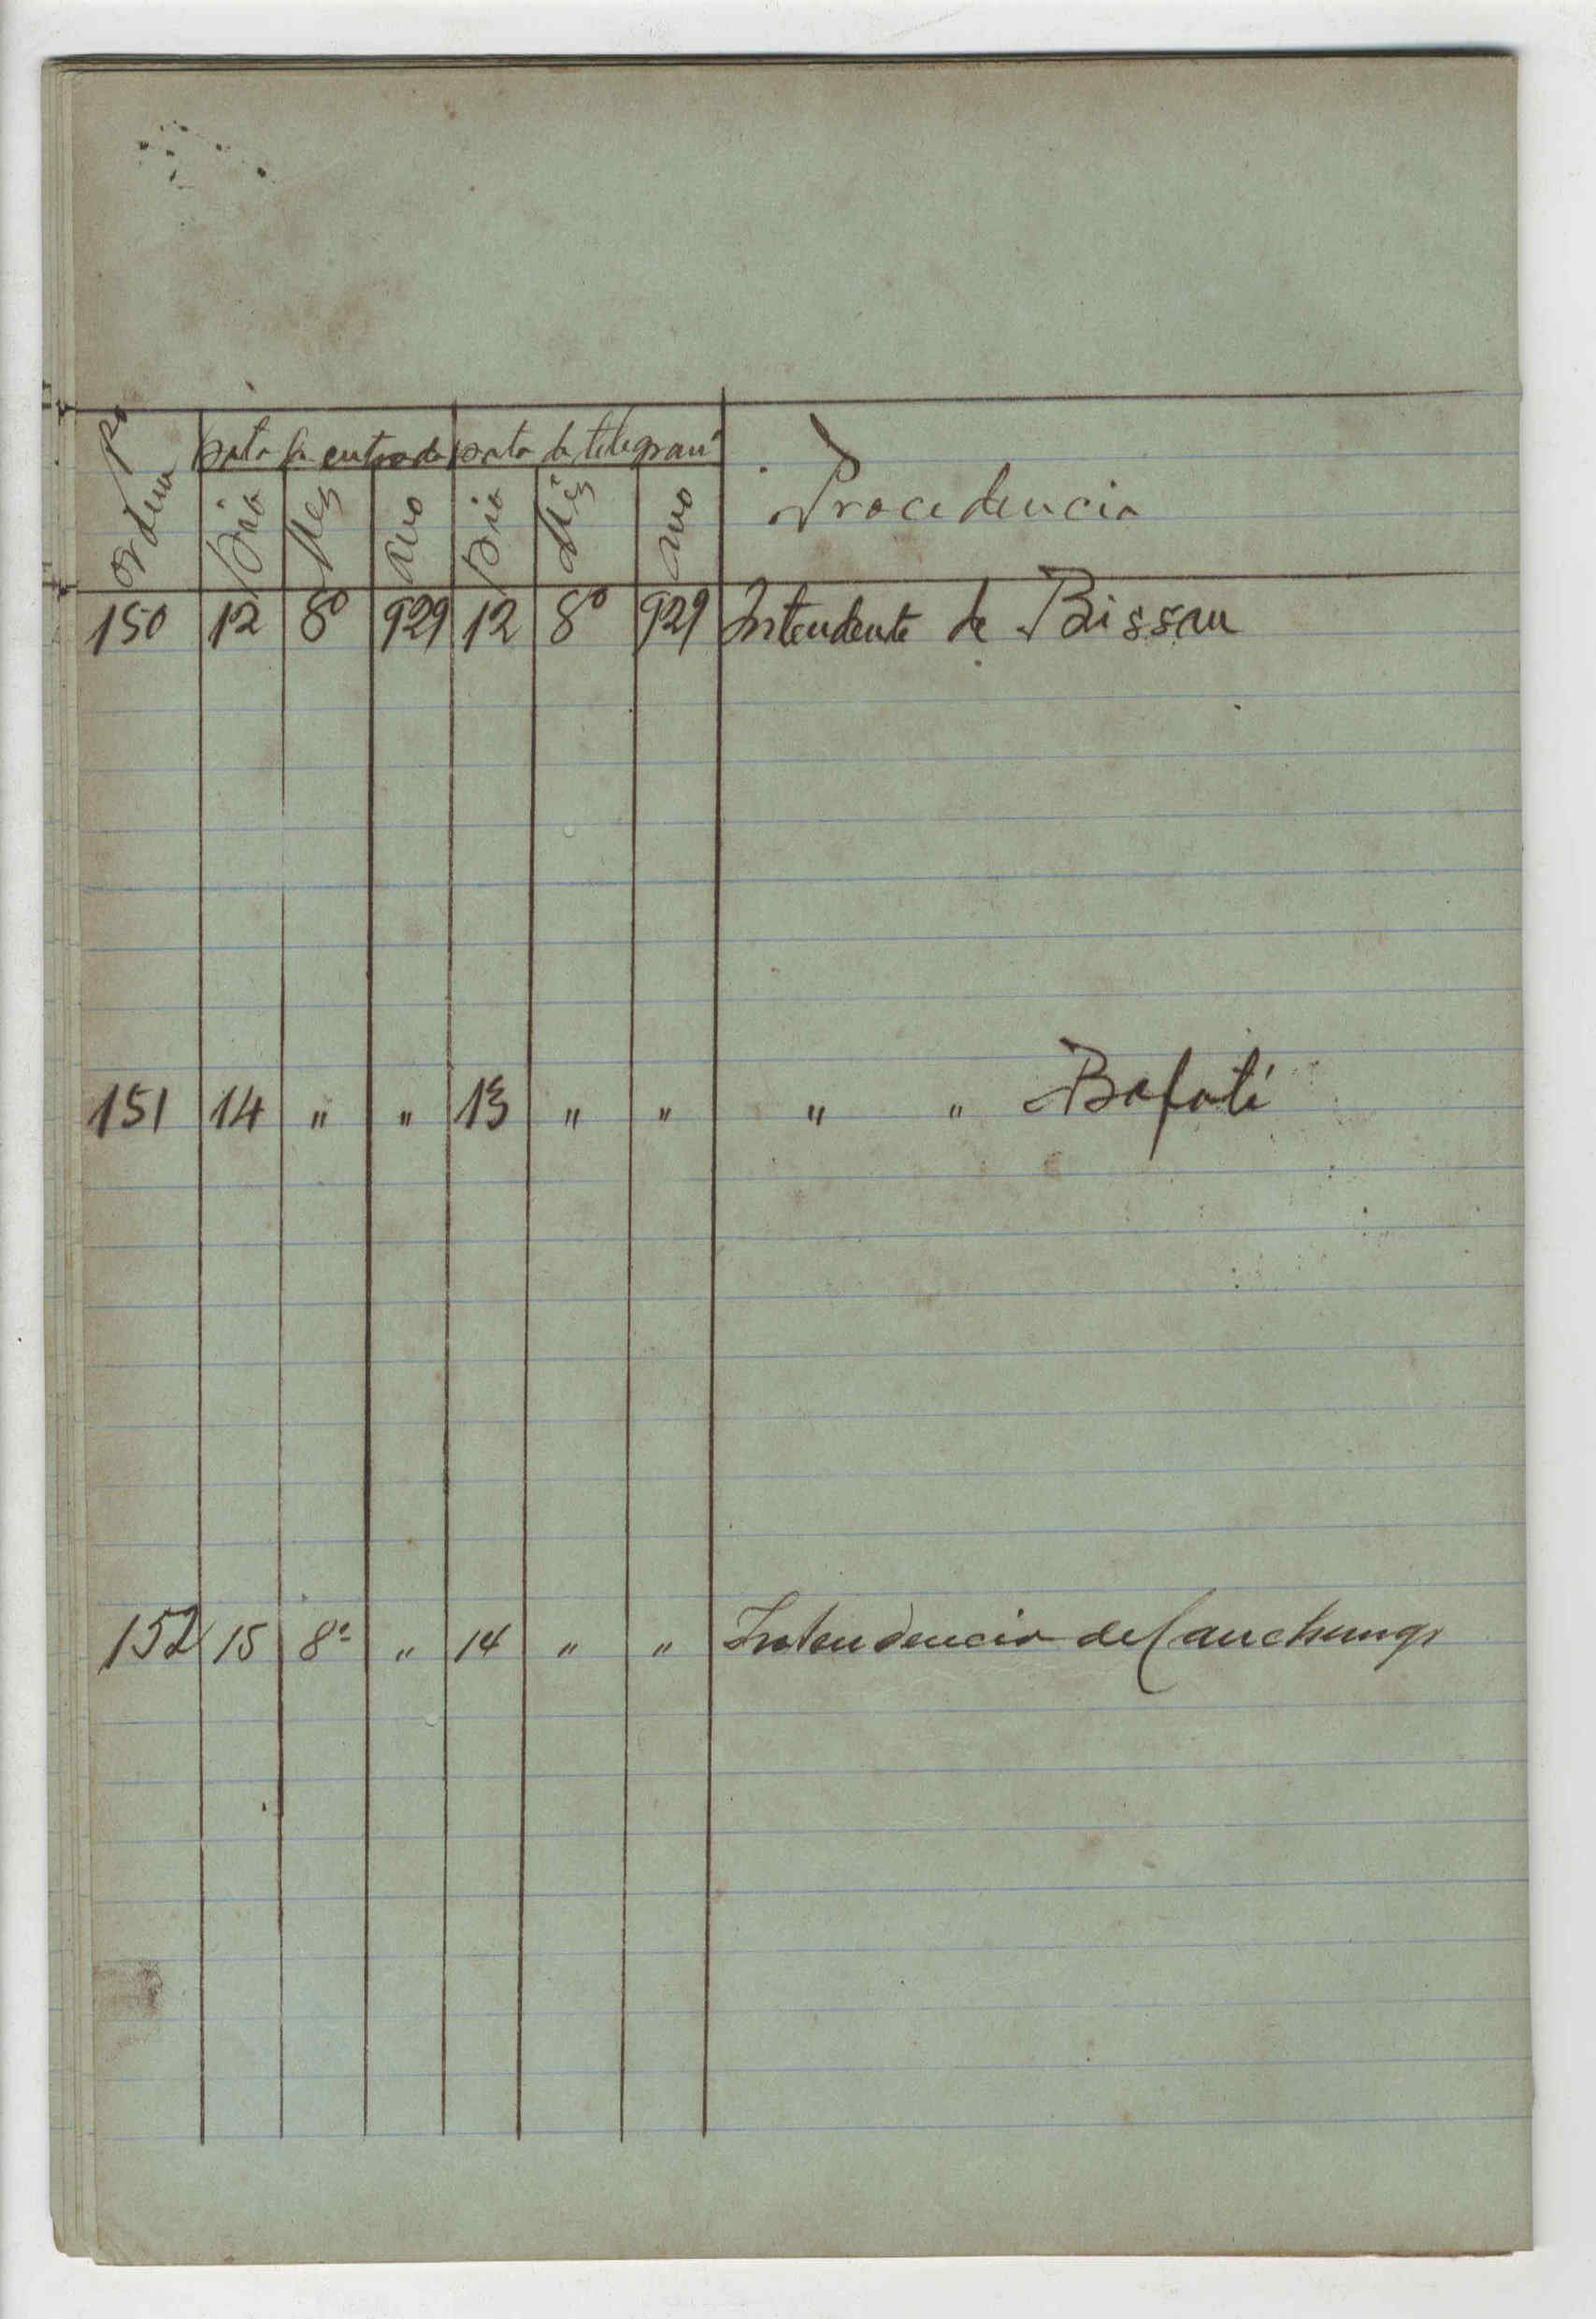 Nº Ordem Data da entrada Data do telegram Procedencia
Dia Mez Ano Dia Mêz Ano
150 12 8º 929 12 8º 929 Intendente de Bissau
151 14 " " 13 " " " " Bafatá
152 15 8º " 14 " " Intendencia de Canchungo